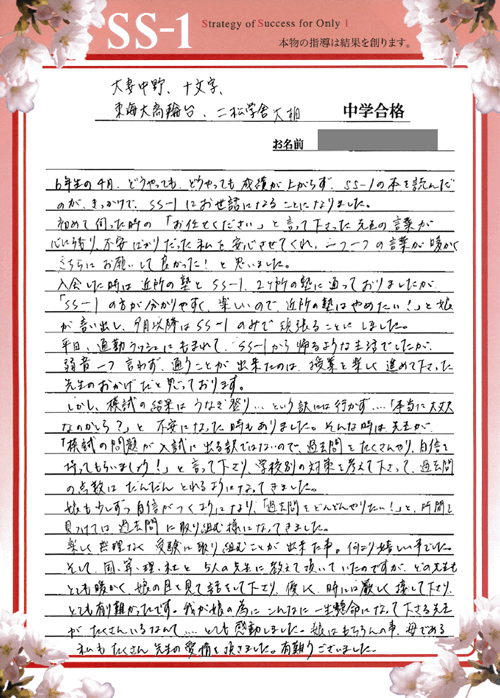 SS-1
Strategy of Success for Only 1
本物の指導は結果を創ります。
大妻中野、十文字、
東海大高輪台、二松学舎大柏 中学合格
お名前
6年生の4月、どうやっても、どうやっても成績が上がらず、SS-1の本を読んだ
のが、きっかけで、SS-1にお世話になることになりました。
初めて伺った時の「お任せください」と言って下さった先生の言葉が
心に残り、不安ばかりだった私を安心させてくれ、一つ一つの言葉が暖かく
こちらにお願いして良かった!と思いました。
入会した時は近所の塾とSS-1、2ヶ所の塾に通っておりましたが、
「SS-1の方が分かりやすく、楽しいので、近所の塾はやめたい!」と娘
が言い出し、9月以降はSS-1のみで頑張ることにしました。
平日、通勤ラッシュにもまれて、SS-1から帰るような生活でしたが、
弱音一つ言わず、通うことが出来たのは、授業を楽しく進めて下さった
先生のおかげだと思っております。
しかし、模試の結果はうなぎ登り…という訳には行かず…「本当に大丈夫
なのかしら?」と不安になった時もありました。そんな時は先生が、
「模試の問題が入試に出る訳ではないので、過去問をたくさんやり、自信を
持ってもらいましょう!」と言って下さり、学校別の対策を考えて下さって、過去問
の点数はだんだんとれるようになってきました。
娘も少しずつ自信がつくようになり、「過去問をどんどんやりたい!」と、時間を
見つけては過去問に取り組む様になってきました。
楽しく無理なく受験に取り組むことが出来た事。何より嬉しい事でした。
そして、国、算、理、社と5人の先生に教えて頂いていたのですが、どの先生も
とても暖かく、娘の目を見て話をして下さり、優しく、時には厳しく接して下さり、
とても有り難かったです。我が娘の為にこんなに一生懸命になって下さる先生
がたくさんいるなんて…。とても感動しました。娘はもちろんの事、母である
私もたくさん先生の愛情を頂きました。有難うございました。